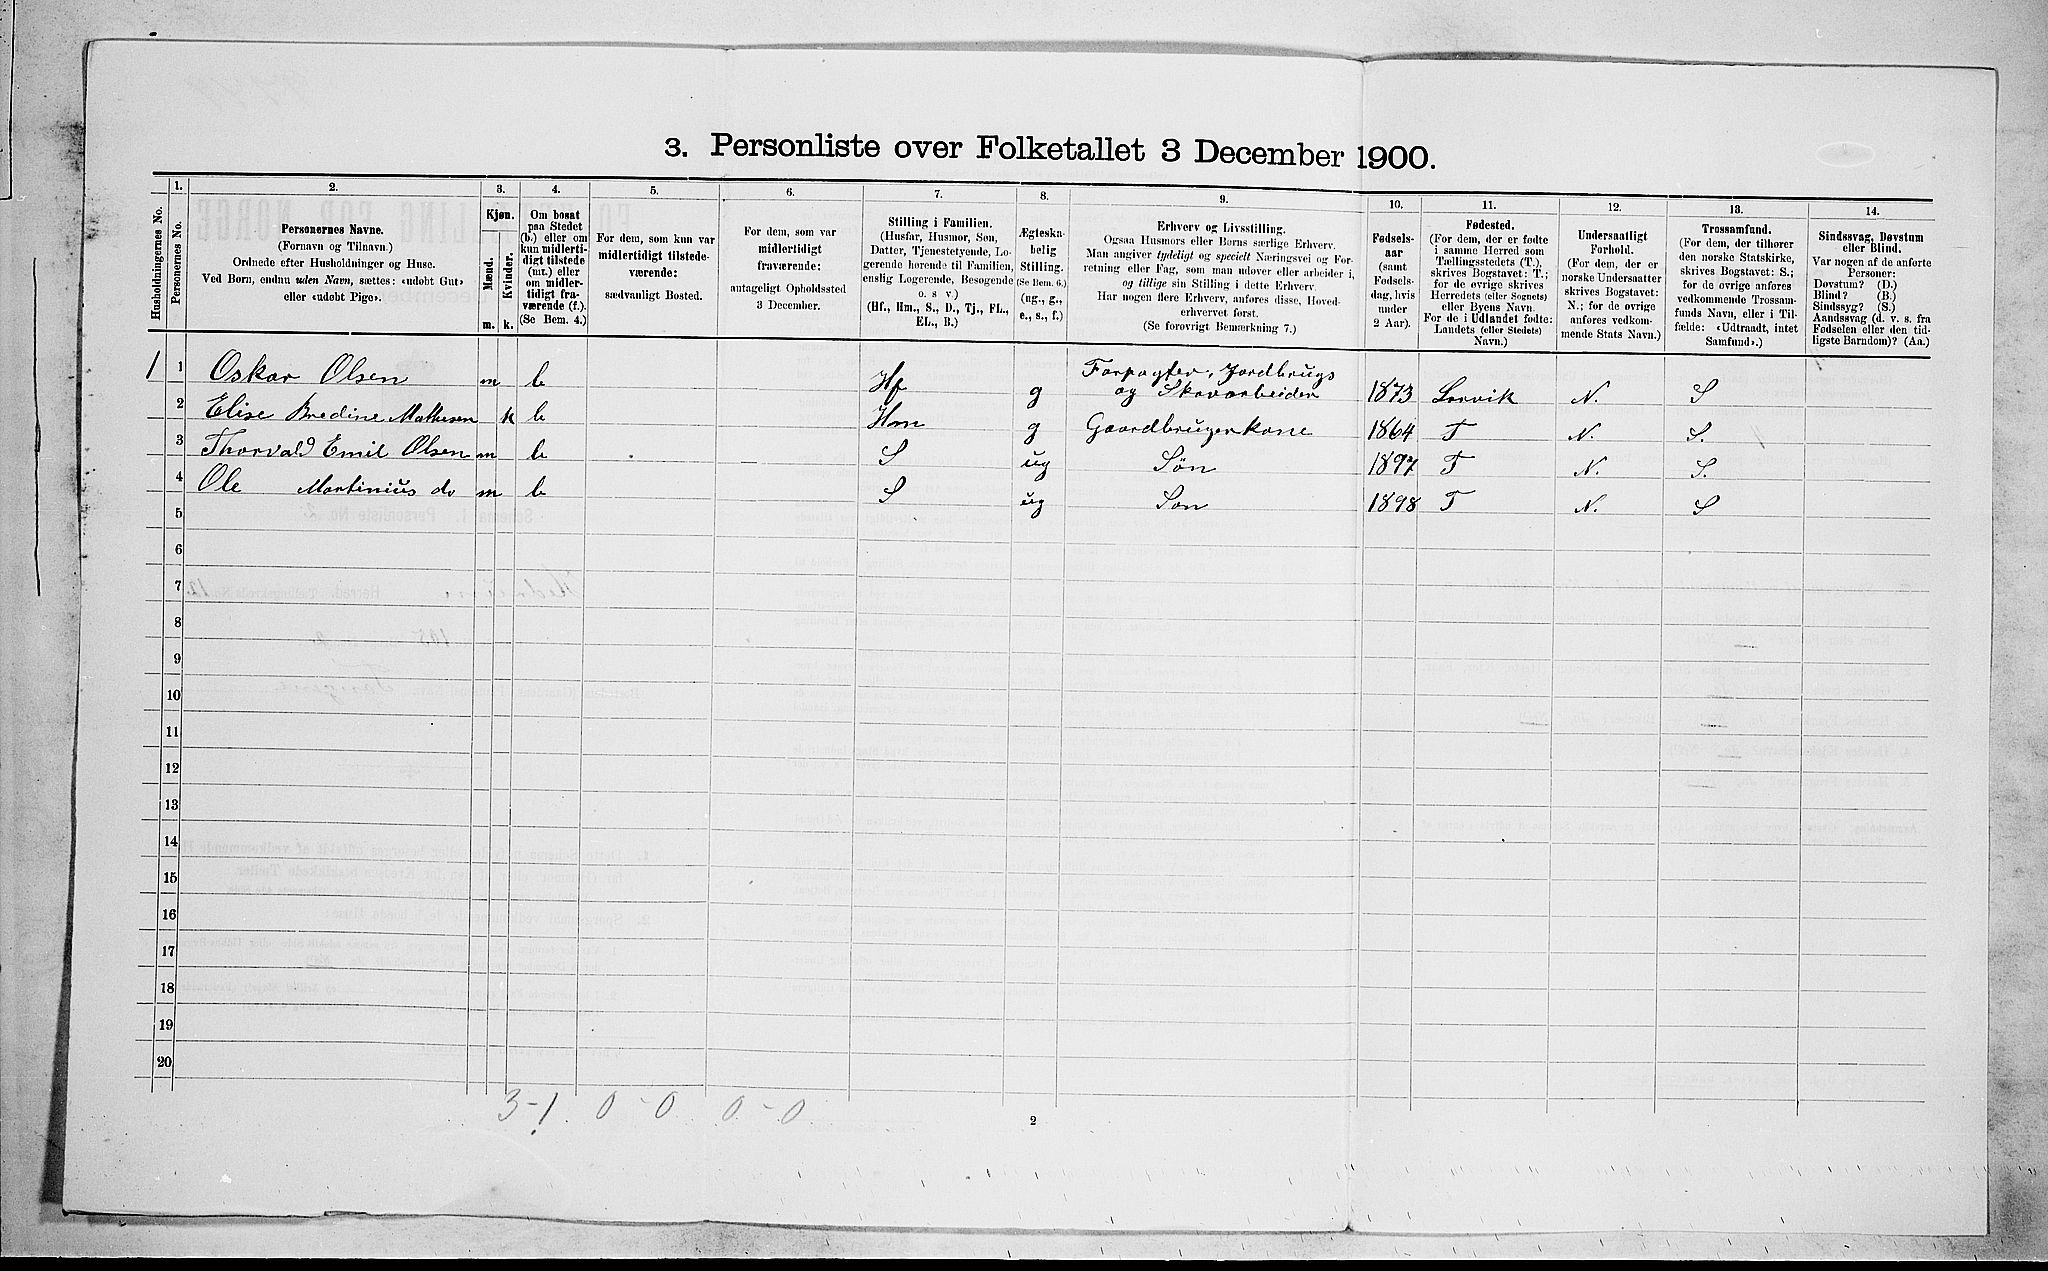 3. Personliste over Folketallet 3 December 1900.
1. 2. 3. 4. 5. 6. 7. 8. 9. 10. 11. 12. 13. 14.
Husholdningernes No.
Personernes No.
Personernes Navne.
(Fornavn og Tilnavn.)
Ordnede efter Husholdninger og Huse.
Ved Børn, endnu uden Navn, sættes: «udøbt Gut»
eller «udøbt Pige».
Kjøn.
Mænd.
Kvinder.
m. k.
Om bosat
paa Stedet
(b.) eller om
kun midlerti-
digt tilstede
(mt.) eller
om midler-
tidigt fra-
værende (f.).
(Se Bem. 4.)
For dem, som kun var
midlertidigt tilstede-
værende:
sædvanligt Bosted.
For dem, som var
midlertidigt
fraværende:
antageligt Opholdssted
3 December.
Stilling i Familien.
(Husfar, Husmor, Søn,
Datter, Tjenestetyende, Lo-
gerende hørende til Familien,
enslig Logerende, Besøgende
o. s v.)
(Hf., Hm., S., D., Tj., FL.,
EL., B.)
Ægteska-
belig
Stilling.
(Se Bem. 6.)
(ug., g.,
e., s., f.)
Erhverv og Livsstilling.
Ogsaa Husmors eller Børns særlige Erhverv.
Man angiver tydeligt og specielt Næringsvei og For-
retning eller Fag, som man udøver eller arbeider i,
og tillige sin Stilling i dette Erhverv.
Har nogen flere Erhverv, anføres disse, Hoved-
erhvervet først.
(Se forøvrigt Bemærkning 7.)
Fødsels-
aar
(samt
Fødsels-
dag, hvis
under
2 Aar).
Fødested.
(For dem, der er fødte
i samme Herred som
Tællingsstedets (T.),
skrives Bogstavet: T.;
for de øvrige skrives
Herredets (eller Sognets)
eller Byens Navn.
For de i Udlandet fødte:
Landets (eller Stedets)
Navn.)
Undersaatligt
Forhold.
(For dem, der er
norske Undersaatter
skrives Bogstavet:
N.; for de øvrige
anføres vedkom-
mende Stats Navn.)
Trossamfund.
(For dem, der tilhører
den norske Statskirke,
skrives Bogstavet: S.;
for de øvrige anføres
vedkommende Trossam-
funds Navn, eller i Til-
fælde: «Udtraadt, intet
Samfund».)
Sindssvag, Døvstum
eller Blind.
Var nogen af de anførte
Personer:
Døvstum? (D.)
Blind? (B.)
Sindssyg? (S.)
Aandssvag (d. v. s. fra
Fødselen eller den tid-
ligste Barndom)? (Aa.)
1 1 Oskar Olsen m b Hf g Forpagter, Jordbrugs og Skovarbeider 1873 Lorvik N. S
2 Elise Bredine Mathesen k b Hm g Gaardbrugerkone 1864 T N. S.
3 Thorvald Emil Olsen m b S ug Søn 1897 T N. S.
4 Ole Martinius do m b S ug Søn 1898 T N. S
5
6
7
8
9
10
11
12
13
14
15
16
17
18
19
20
3-1 0-0 0-0
2